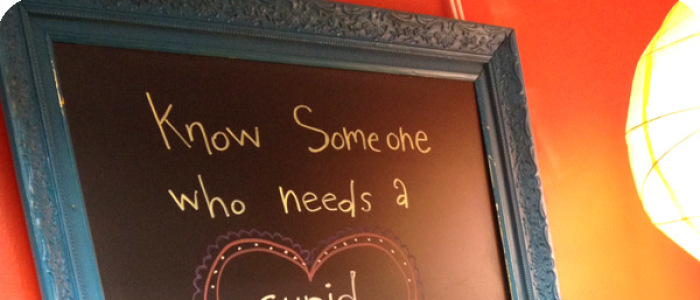 Know Someone
who needs a
cupid